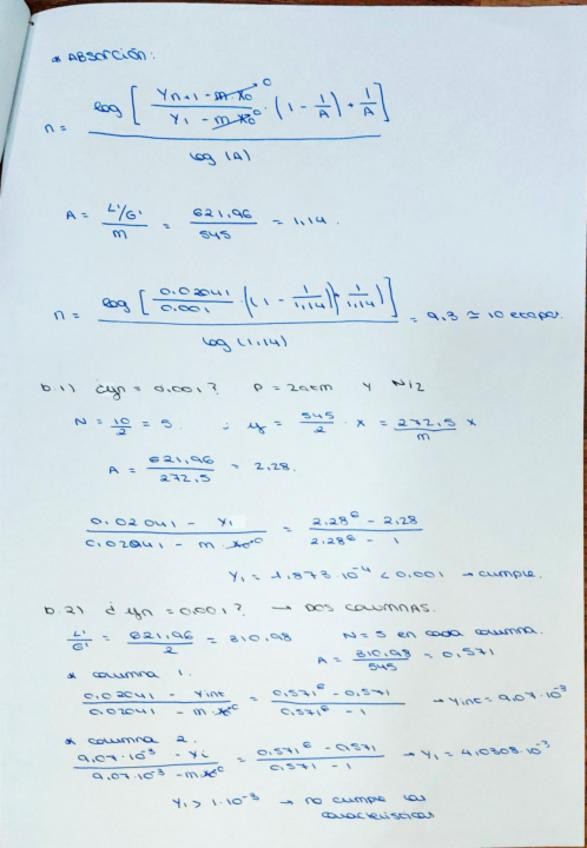 * ABSORCIÓN:
n = log [ (Yn+1 - m·x0⁰ / Y1 - m·x0⁰) · (1 - 1/A) + 1/A ] / log (A)
A = L'/G' / m = 621,96 / 545 = 1,14.
n = log [ 0.02041 / 0.001 · (1 - 1/1,14) + 1/1,14 ] / log (1,14) = 9,3 ≃ 10 etapas.
b.1) ¿yn = 0.001? P = 2atm y N/2
N = 10/2 = 5. ; y = 545/2 · x = 272,5 x
m
A = 621,96 / 272,5 = 2,28.
0.02041 - Y1 / 0.02041 - m·x0⁰ = 2,28⁶ - 2,28 / 2,28⁶ - 1
Y1 = 1.873·10⁻⁴ < 0.001 → cumple.
b.2) ¿yn = 0.001? → DOS COLUMNAS.
L'/G' = 621,96 / 2 = 310,98 N = 5 en cada columna.
A = 310,98 / 545 = 0,571
* columna 1.
0.02041 - Yint / 0.02041 - m·x⁰ = 0,571⁶ - 0,571 / 0,571⁶ - 1 → Yint = 9,07·10⁻³
* columna 2.
9,07·10⁻³ - Y1 / 9,07·10⁻³ - m·x⁰ = 0,571⁶ - 0,571 / 0,571 - 1 → Y1 = 4,0308·10⁻³
Y1 > 1·10⁻³ → no cumple las
características